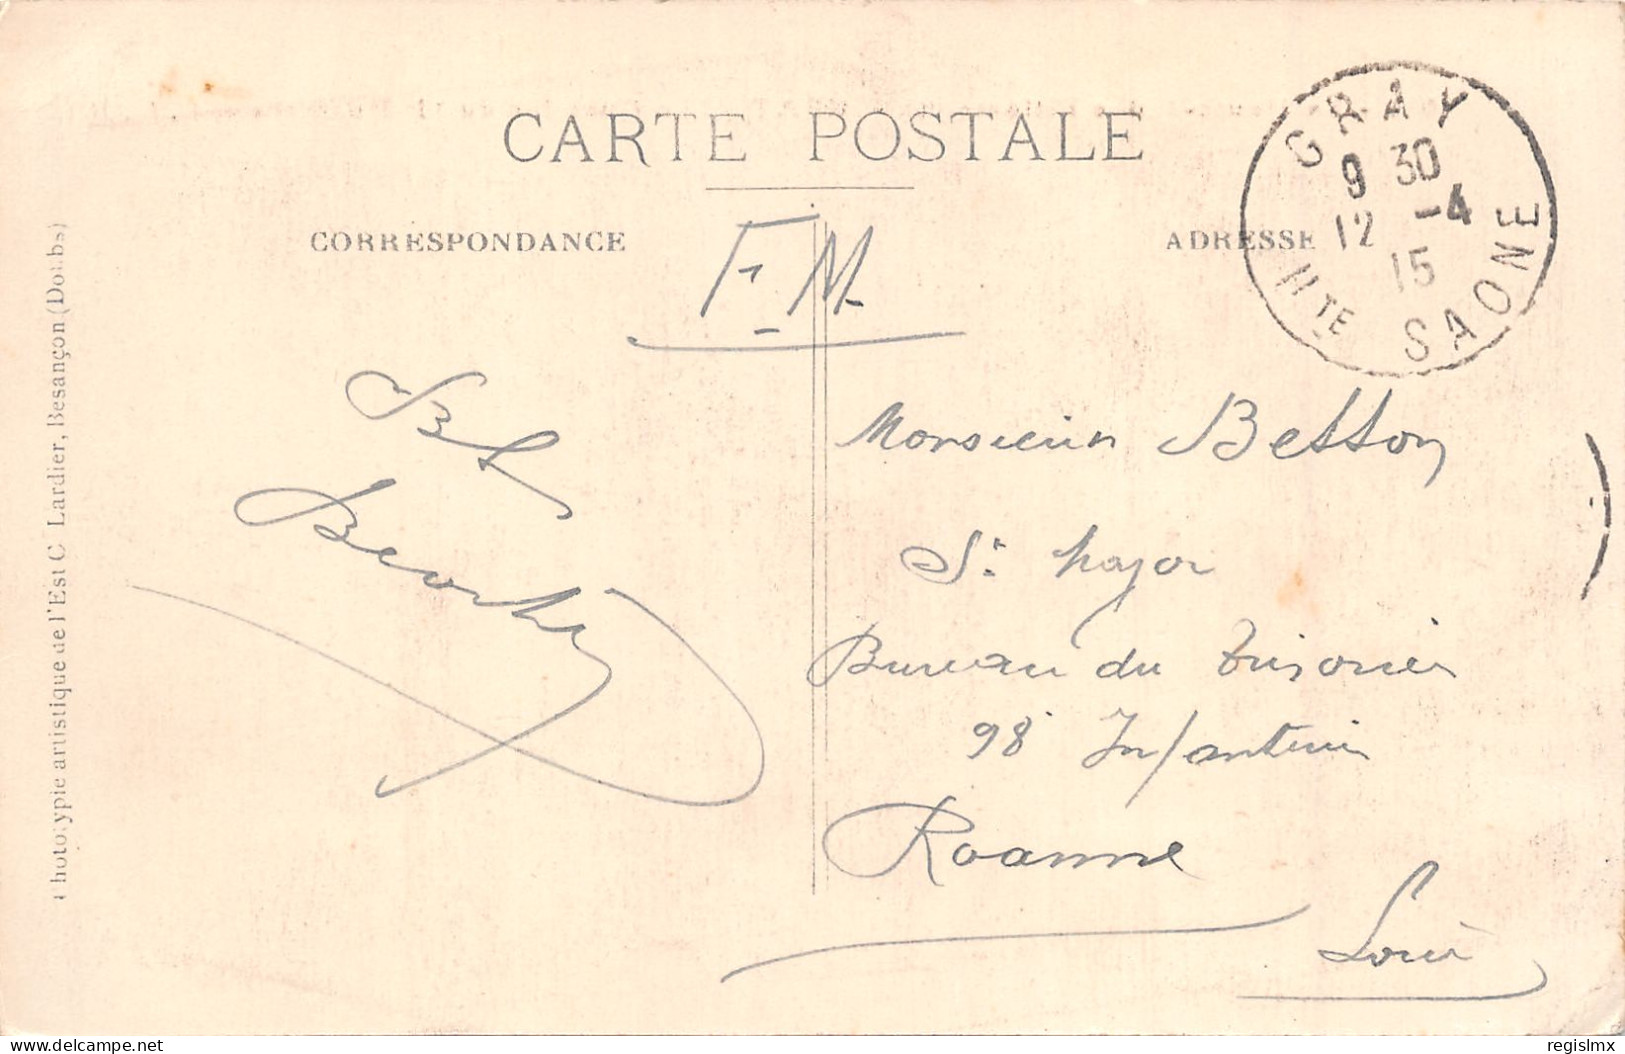 CARTE POSTALE
CORRESPONDANCE
ADRESSE
GRAY
9 30
12 -4
15
Hte SAONE
F. M.
Monsieur Betton
St Major
Bureau du
98 Infanterie
Roanne
Loire
Phototypie artistique de l'Est C Lardier, Besançon (Doubs)
delcampe.net
regislmx